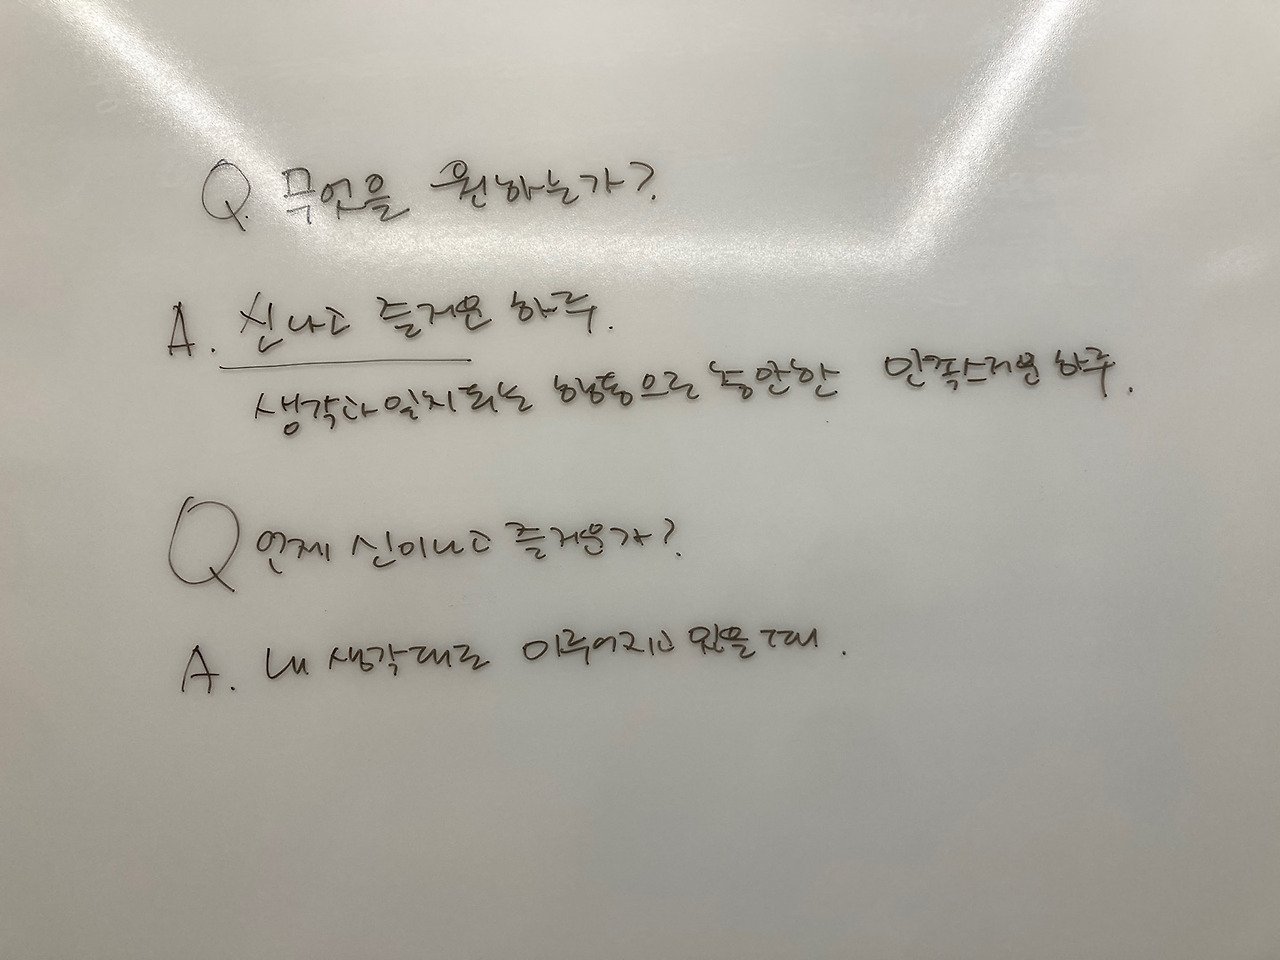 Q. 무엇을 원하는가?
A. 신나고 즐거운 하루.
생각과 일치되는 행동으로 충만한 만족스러운 하루.
Q 언제 신이나고 즐거운가?
A. 내 생각대로 이루어지고 있을 때.